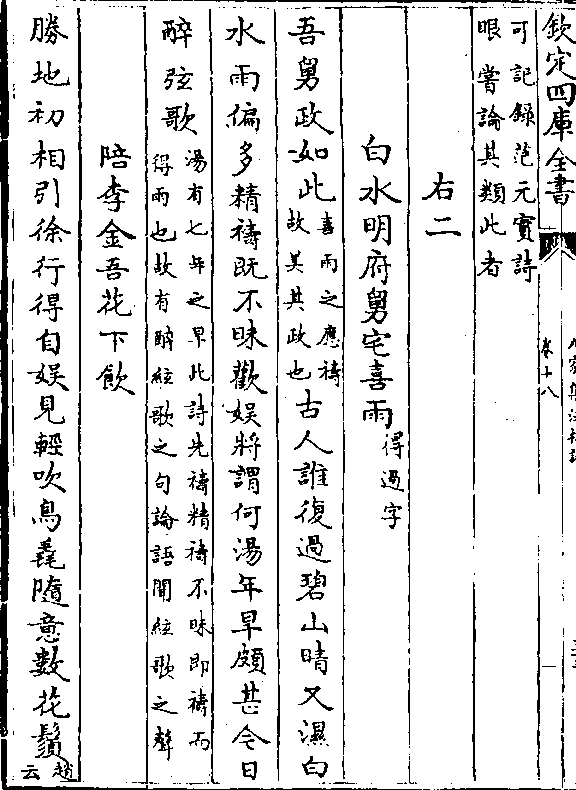 欽定四庫全書
卷十八
可記録范元實詩
眼嘗論其類此者
右二
白水明府舅宅喜雨得過字
吾舅政如此喜雨之應禱故美其政也古人誰復過碧山晴又濕白
水雨偏多精禱既不昧歡娱將謂何湯年旱頗甚今日
醉弦歌湯有七年之旱此詩先禱精禱不昧即禱而得雨也故有醉絃歌之句論語聞絃歌之聲
陪李金吾花下飲
勝地初相引徐行得自娱見輕吹鳥毳隨意數花鬚趙云